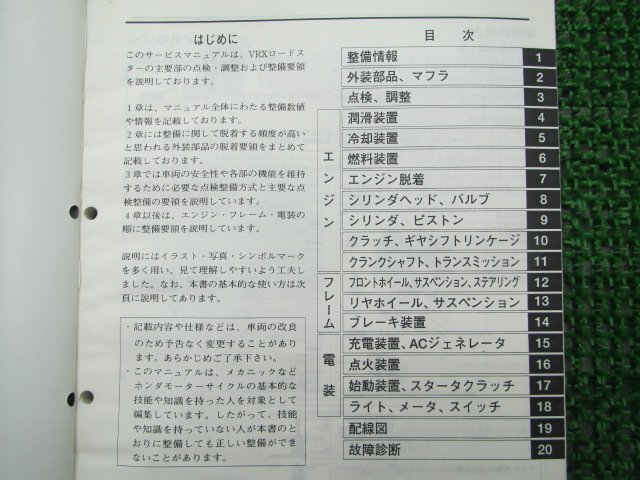 はじめに
このサービスマニュアルは、VRXロードス
ターの主要部の点検・調整および整備要領
を説明しております。
1章は、マニュアル全体にわたる整備数値
や情報を記載しております。
2章には整備に関して脱着する頻度が高い
と思われる外装部品の脱着要領をまとめて
記載しております。
3章では車両の安全性や各部の機能を維持
するために必要な点検整備方式と主要な点
検整備の要領を説明しています。
4章以後は、エンジン・フレーム・電装の
順に整備要領を説明しています。
説明にはイラスト・写真・シンボルマーク
を多く用い、見て理解しやすいよう工夫し
ました。なお、本書の基本的な使い方は次
頁に説明してあります。
・記載内容や仕様などは、車両の改良
のため予告なく変更することがあり
ます。あらかじめご了承下さい。
・このマニュアルは、メカニックなど
ホンダモーターサイクルの基本的な
技能や知識を持った人を対象として
編集しています。したがって、技能
や知識を持っていない人が本書のと
おりに整備しても正しい整備ができ
ないことがあります。
目 次
整備情報 1
外装部品、マフラ 2
点検、調整 3
エンジン
潤滑装置 4
冷却装置 5
燃料装置 6
エンジン脱着 7
シリンダヘッド、バルブ 8
シリンダ、ピストン 9
クラッチ、ギヤシフトリンケージ 10
クランクシャフト、トランスミッション 11
フレーム
フロントホイール、サスペンション、ステアリング 12
リヤホイール、サスペンション 13
ブレーキ装置 14
電装
充電装置、ACジェネレータ 15
点火装置 16
始動装置、スタータクラッチ 17
ライト、メータ、スイッチ 18
配線図 19
故障診断 20